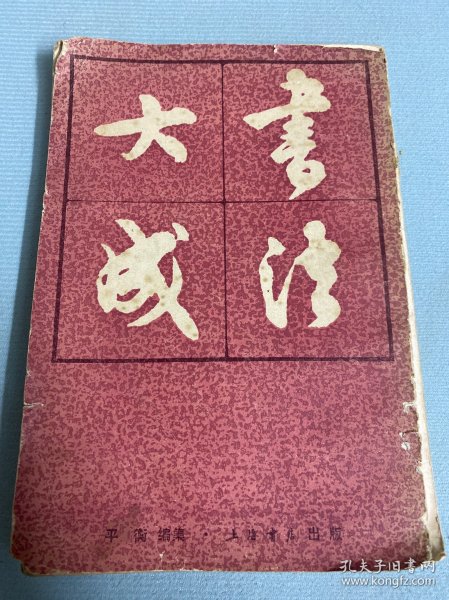 書法
大成
平衡編集・上海書店出版
孔夫子旧书网
www.kongfz.com